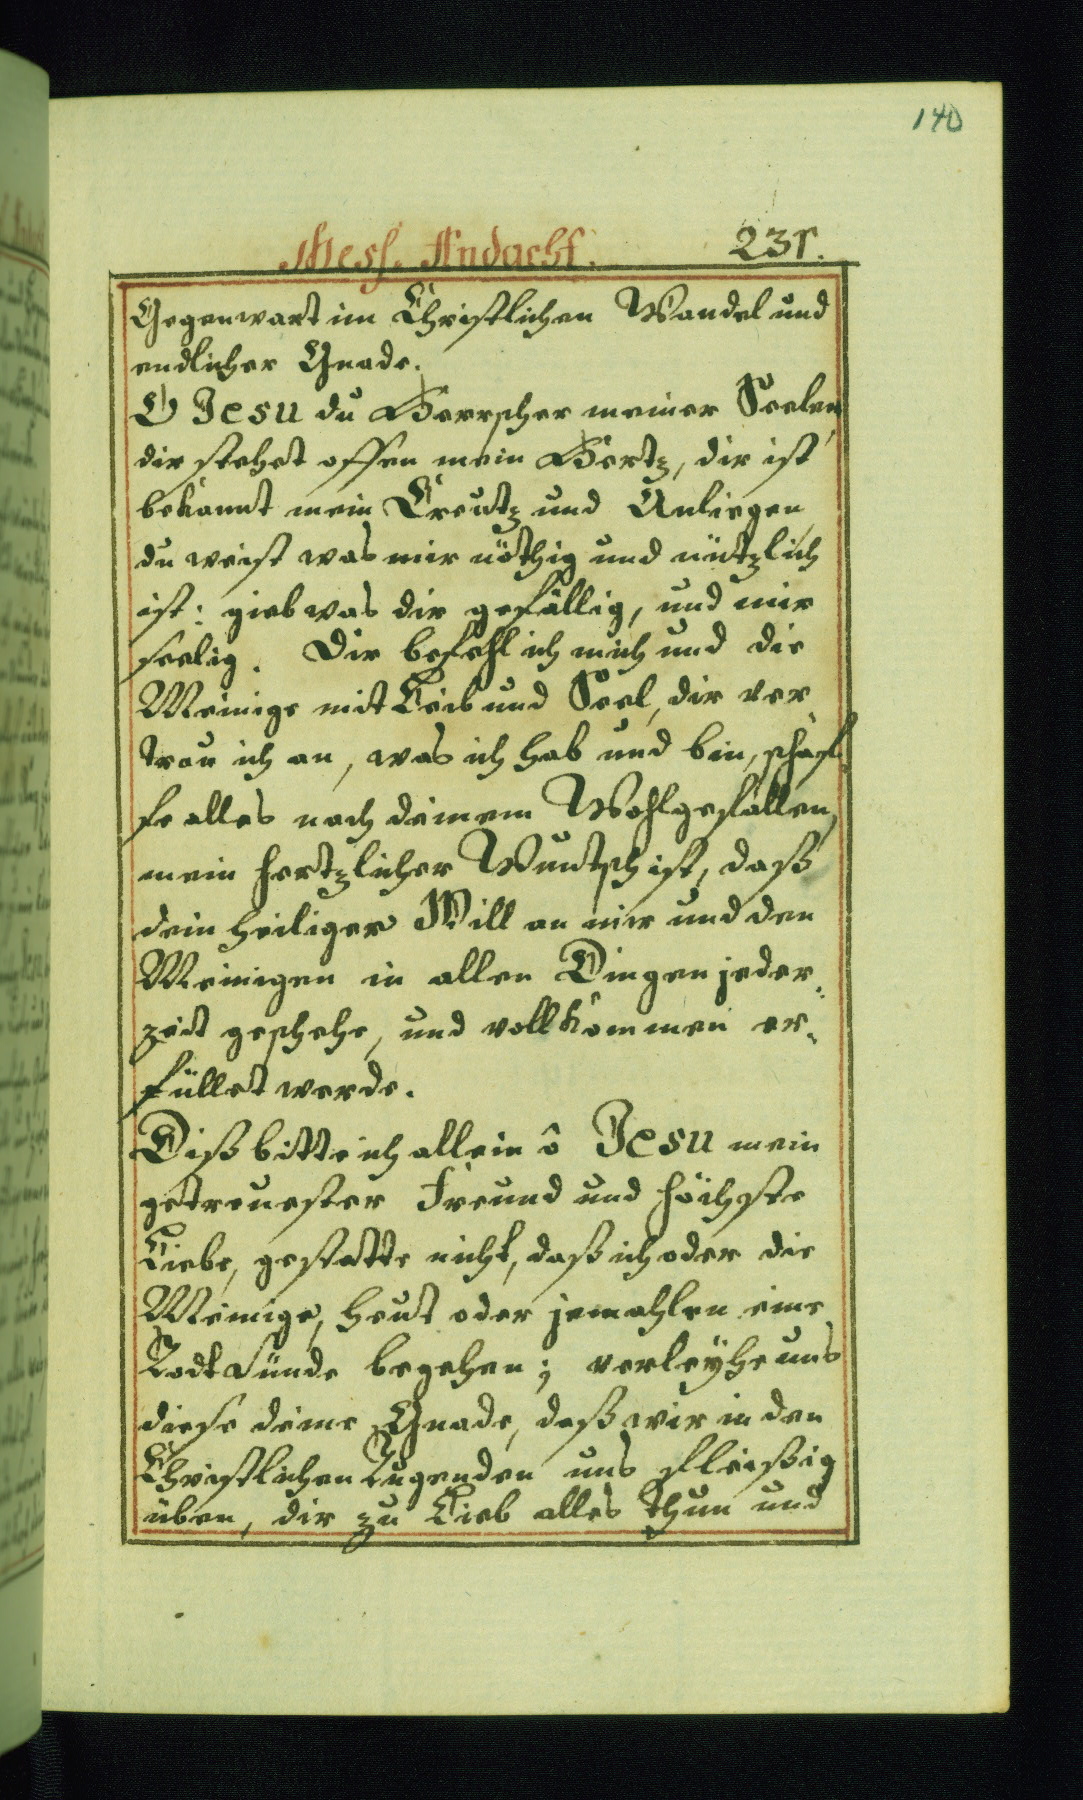 140
Mess. Andacht. 231.
Gegenwart im Christlichen Wandel und
endlicher Gnade.
O Jesu du Herrscher meiner Seelen
dir stehet offen mein Hertz, dir ist
bekannt mein Creutz und Anliegen
du weist was mir nöthig und nützlich
ist: gieb was dir gefällig, und mir
seelig. Dir befehl ich mich und die
Meinige mit Leib und Seel, dir ver
trau ich an, was ich hab und bin, schaf
fe alles nach deinem Wohlgefallen,
mein hertzlicher Wuntsch ist, daß
dein heiliger Will an mir und den
Meinigen in allen Dingen jeder=
zeit geschehe, und vollkommen er=
füllet werde.
Diß bitte ich allein ô Jesu mein
getreuester Freund und höchste
Liebe, gestatte nicht, daß ich oder die
Meinige, heut oder jemahlen eine
Todtsünde begehen; verleÿhe uns
diese deine Gnade, daß wir in den
Christlichen Tugenden uns fleißig
üben, dir zu Lieb alles thun und